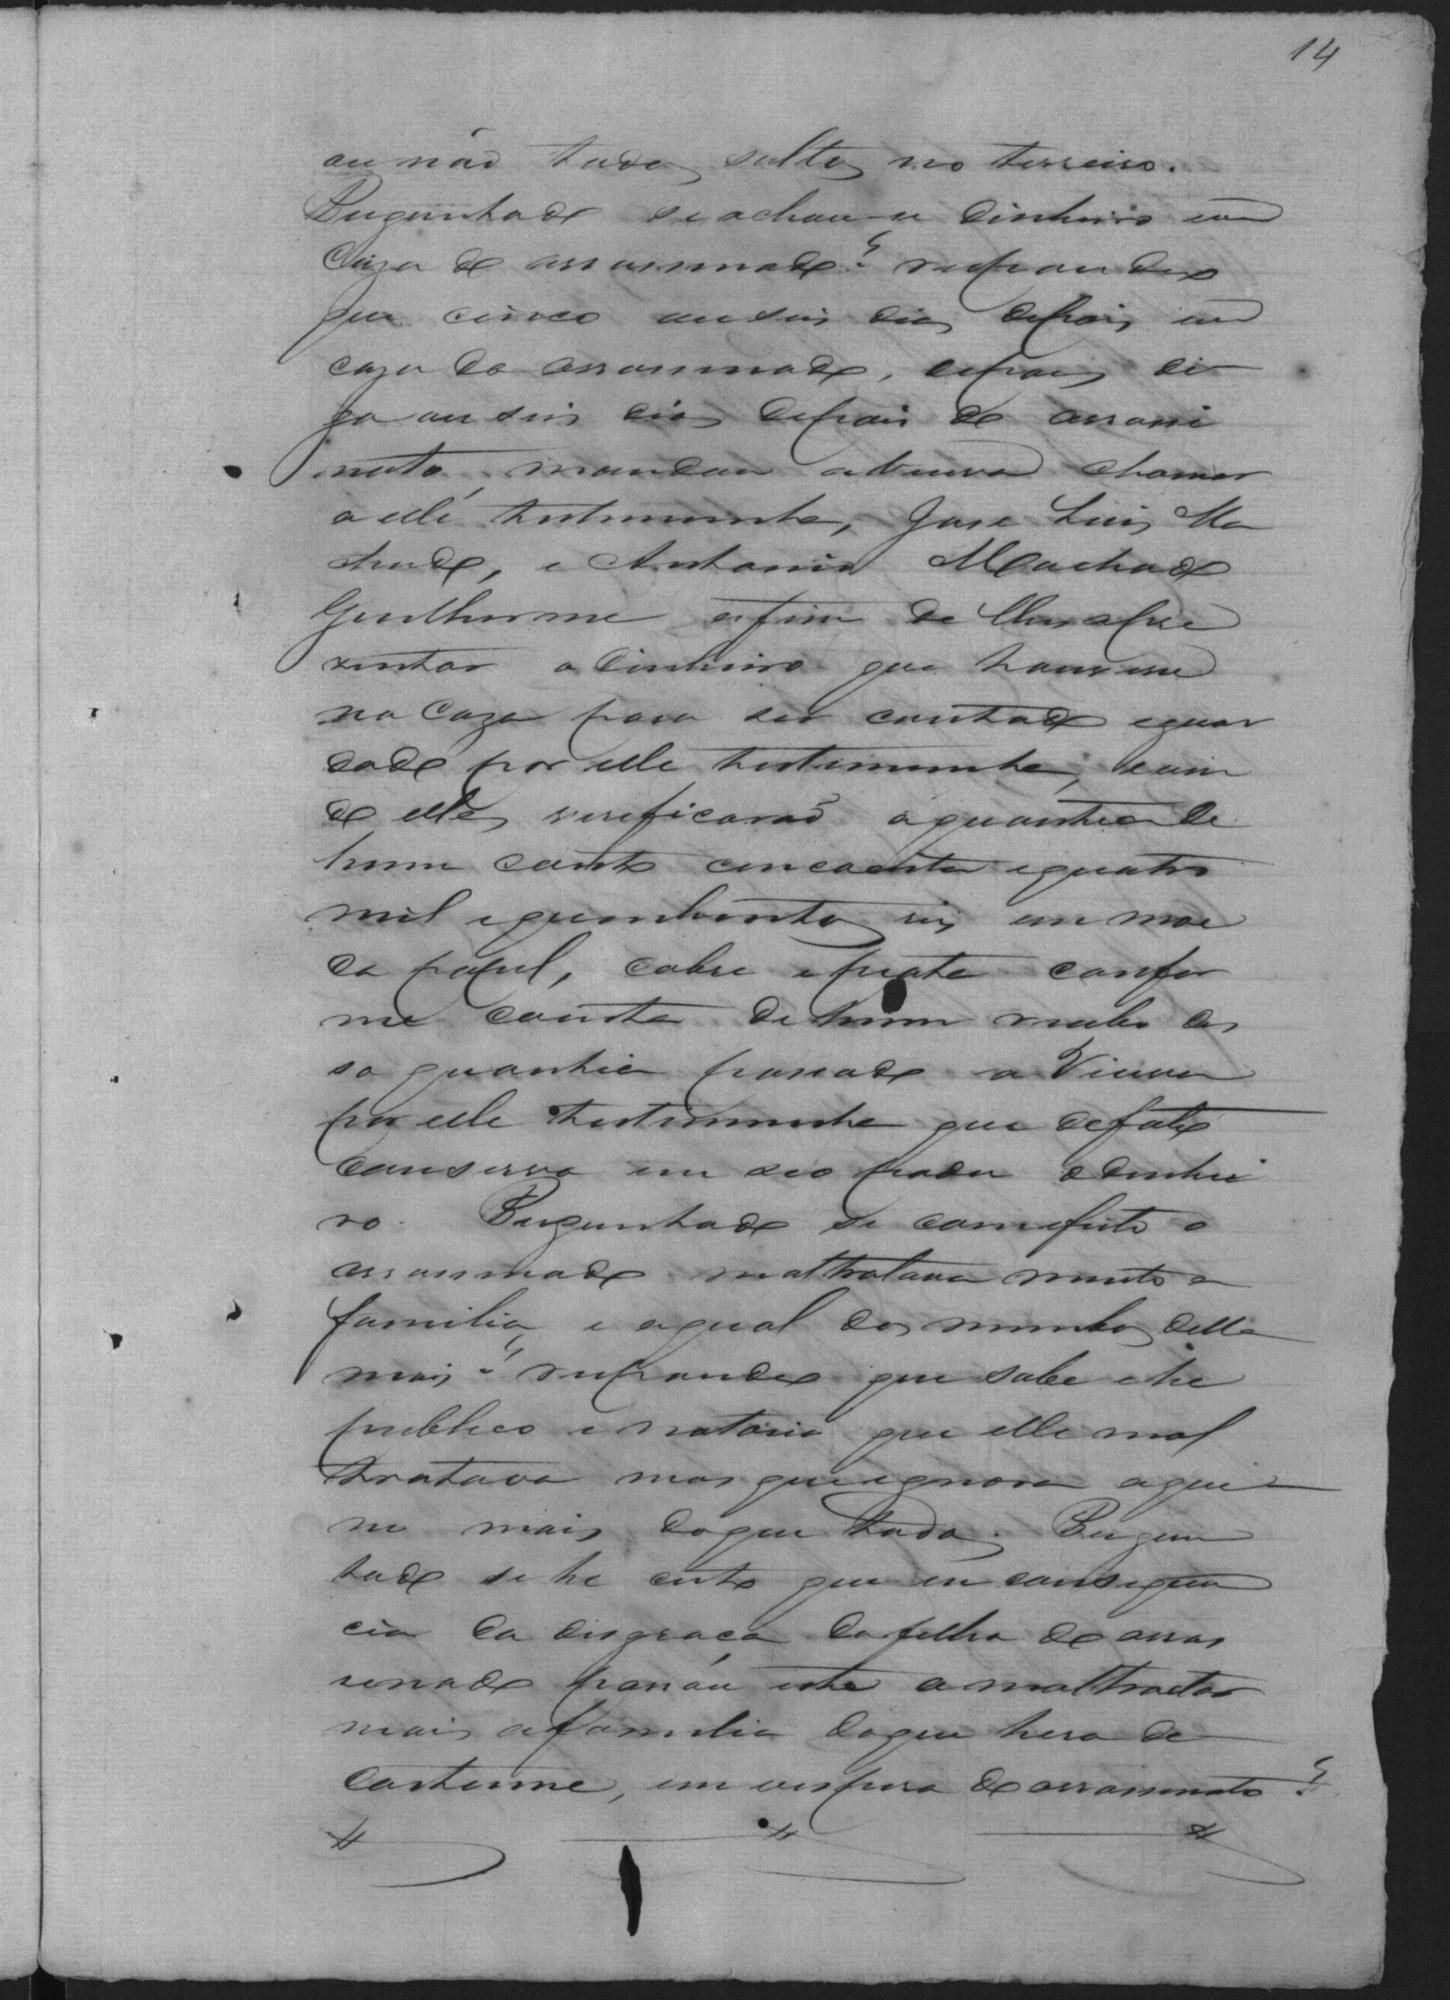 14
ou não todos soltos no terreiro.
Preguntado se achou-se dinheiro em
Caza do assassinado? respondeo
que cinco ou seis dias depois em
caza do assassinado, depois di
go ou seis dias depois do assassi
nato, mandou a viuva chamar
a elle testimunha, Jose Luis Ma
chado, e Antonio Machado
Guilherme afim de lhes apre
zentar o dinheiro que houvesse
na Caza para ser contado e guar
dado por elle testimunha, e sein
do elles verificarão a quantia de
hum conto cincoenta e quatro
mil e quinhentos reis em moe
da papel, cobre e prata confor
me consta de hum recibo des
sa quantia passado a Viuva
por elle testimunha que de facto
conserva em seo poder o dinhei
ro. Preguntado se com efeito o
assassinado maltratava muito a
familia, e a qual dos membros della
mais? respondeo que sabe e he
publico e notorio que elle mal
tratava mas que ignora a que
m mais do que todos. Pregun
tado se he certo que em consequen
cia da disgraça da filha do assas
sinado passou este a maltratar
mais a familia do que hera de
costume, em vespera do assassinato?